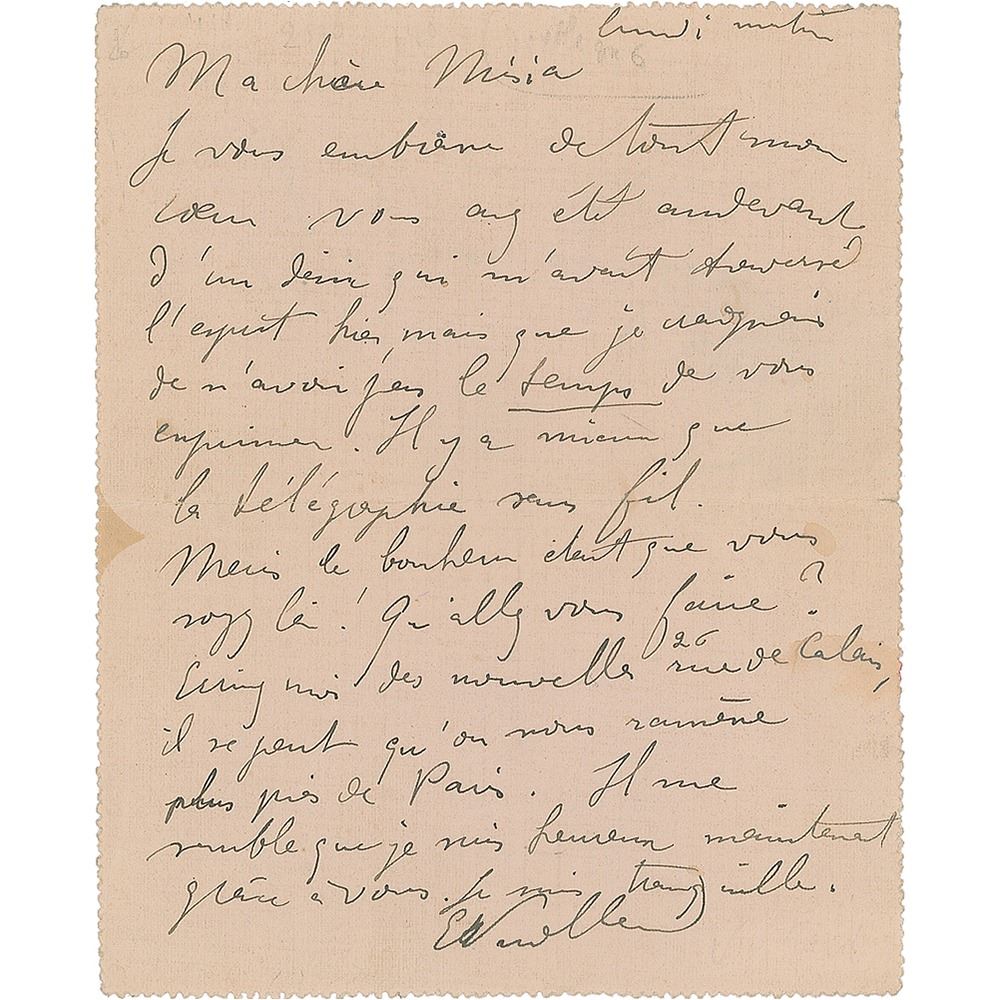 lundi matin
Ma chère Misia
Je vous embrasse de tout mon
cœur vous avez été audevant
d'un désir qui m'avait traversé
l'esprit hier mais que je craignais
de n'avoir pas le temps de vous
exprimer. Il y a mieux que
la télégraphie sans fil.
Mais le bonheur c'est que vous
soyez là! Qu'allez vous faire?
Ecrivez moi des nouvelles 26 rue de Calais,
il se peut qu'on nous ramène
plus près de Paris. Il me
semble que je suis heureux maintenant
grâce à vous. Je suis tranquille.
EVuillard